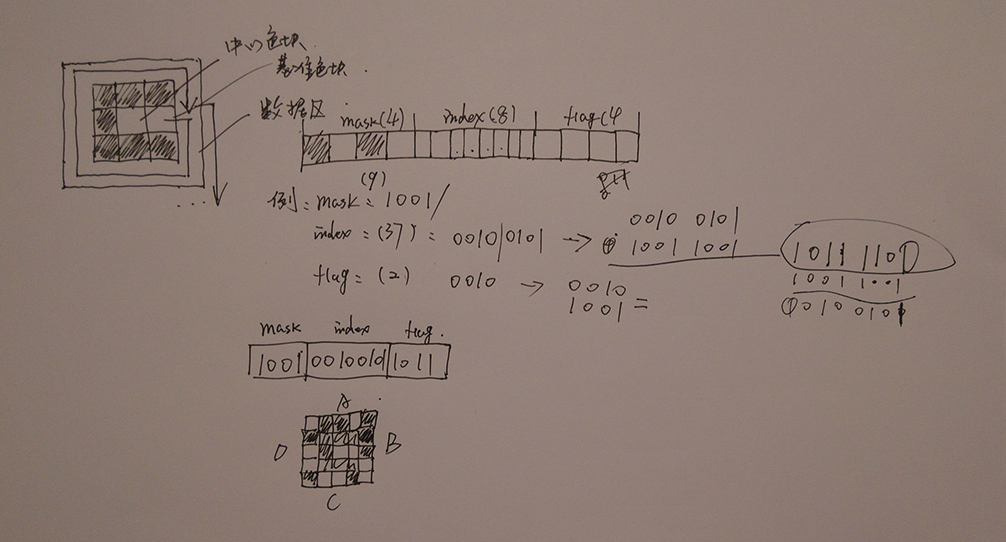 中心色块
基准色块
数据区
mask(4) index(8) flag(4
(9)
例: mask = 1001
index = (37) = 0010|0101 → ⊕ 0010 0101
1001 1001
1011 1100
1001 1001
⊕0010 0101
flag = (2) 0010 → 0010
1001 =
mask index flag.
1001 001001 1011
A
D B
C